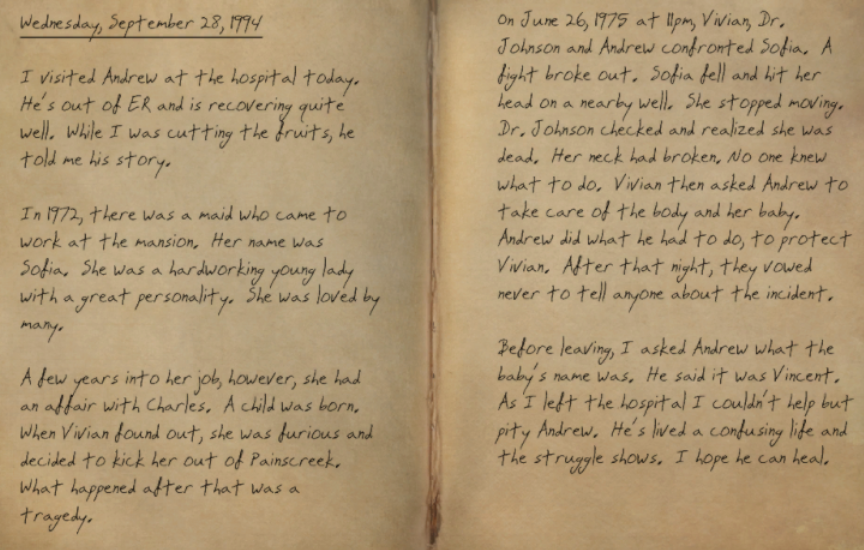 Wednesday, September 28, 1994
I visited Andrew at the hospital today.
He's out of ER and is recovering quite
well. While I was cutting the fruits, he
told me his story.
In 1972, there was a maid who came to
work at the mansion. Her name was
Sofia. She was a hardworking young lady
with a great personality. She was loved by
many.
A few years into her job, however, she had
an affair with Charles. A child was born.
When Vivian found out, she was furious and
decided to kick her out of Painscreek.
What happened after that was a
tragedy.
On June 26, 1975 at 11pm, Vivian, Dr.
Johnson and Andrew confronted Sofia. A
fight broke out. Sofia fell and hit her
head on a nearby well. She stopped moving.
Dr. Johnson checked and realized she was
dead. Her neck had broken. No one knew
what to do. Vivian then asked Andrew to
take care of the body and her baby.
Andrew did what he had to do, to protect
Vivian. After that night, they vowed
never to tell anyone about the incident.
Before leaving, I asked Andrew what the
baby's name was. He said it was Vincent.
As I left the hospital I couldn't help but
pity Andrew. He's lived a confusing life and
the struggle shows. I hope he can heal.